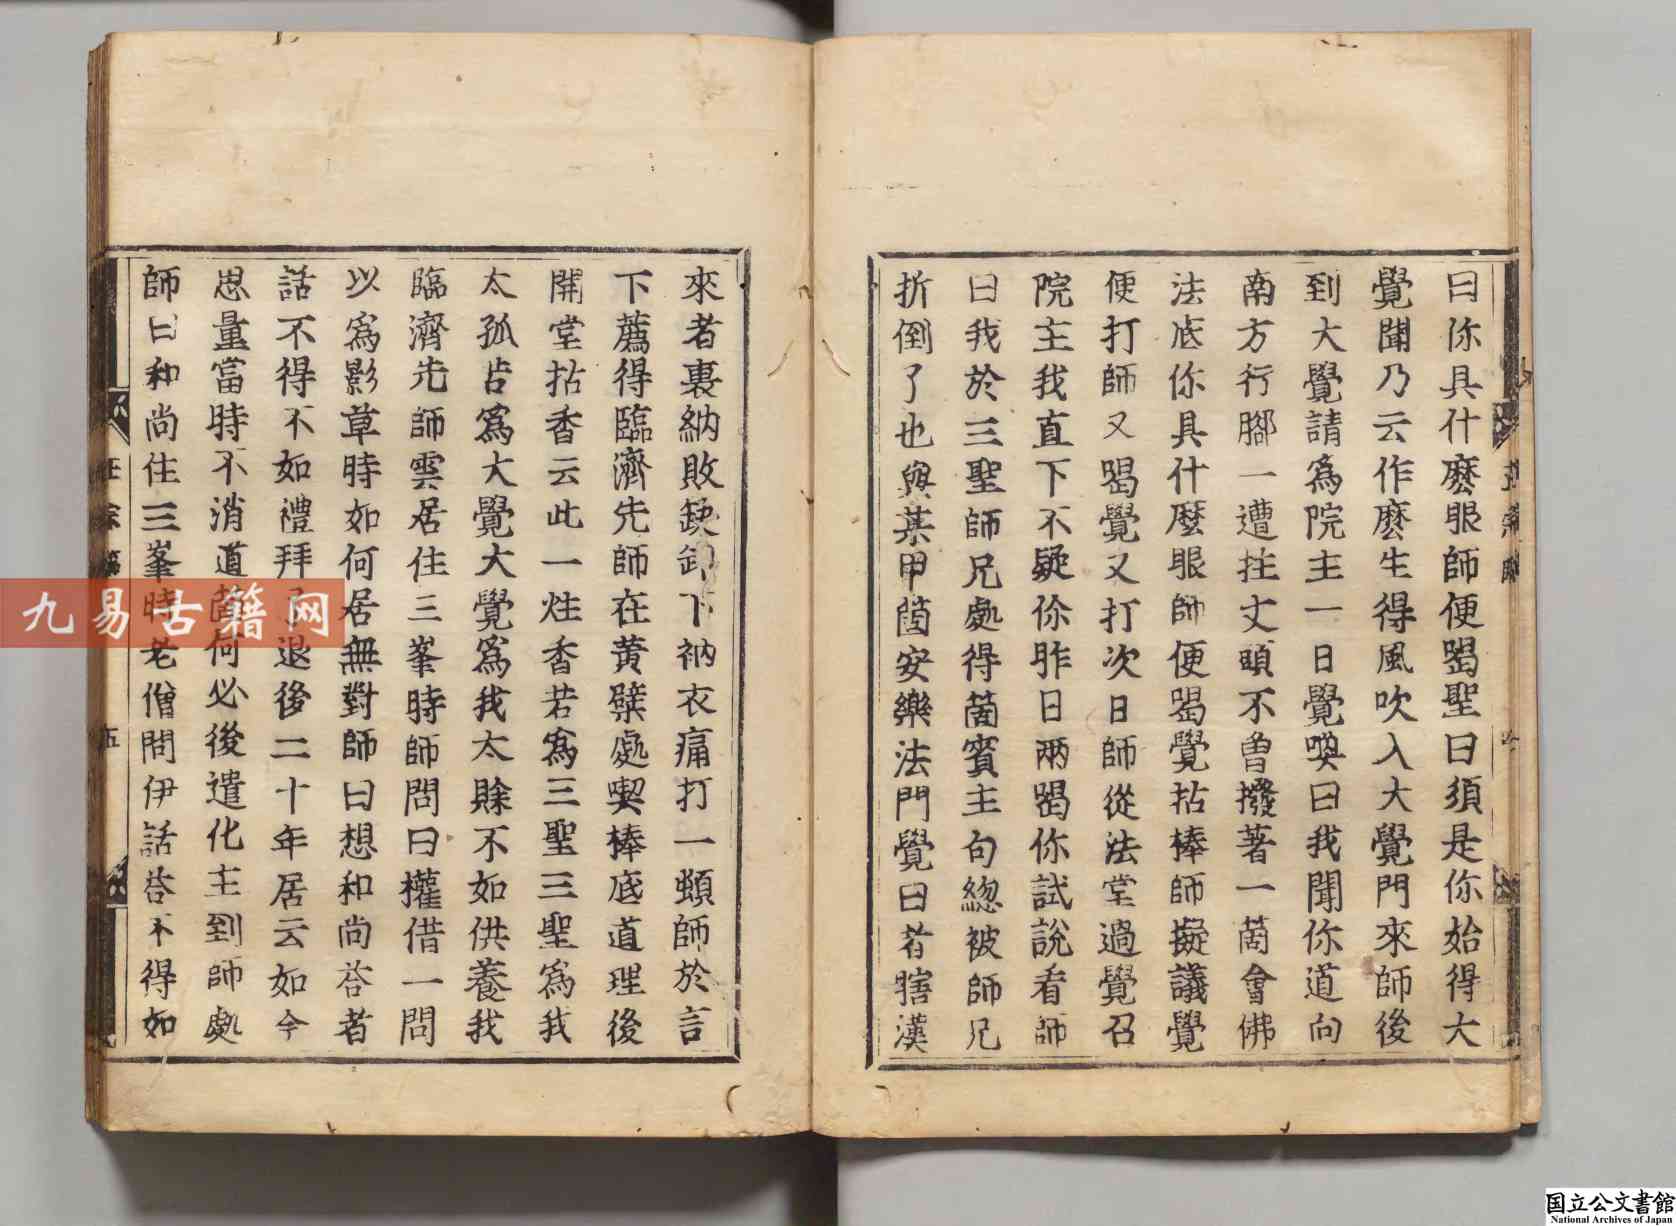 曰你具什麽眼師便喝聖曰須是你始得大
覺聞乃云作麽生得風吹入大覺門來師後
到大覺請爲院主一日覺喚曰我聞你道向
南方行腳一遭拄丈頭不曾撥著一箇會佛
法底你具什麽眼師便喝覺拈棒師擬議覺
便打師又喝覺又打次日師從法堂過覺召
院主我直下不疑你昨日兩喝你試說看師
曰我於三聖師兄處得箇賓主句緫被師兄
折倒了也與某甲箇安樂法門覺曰者瞎漢
來者裏納敗缺卸下衲衣痛打一頓師於言
下薦得臨濟先師在黃檗處喫棒底道理後
開堂拈香云此一炷香若爲三聖三聖爲我
太孤占爲大覺大覺爲我太賖不如供養我
臨濟先師雲居住三峯時師問曰權借一問
以爲影草時如何居無對師曰想和尚荅者
話不得不如禮拜了退後二十年居云如今
思量當時不消道箇何必後遣化主到師處
師曰和尚住三峯時老僧問伊話荅不得如
五
九易古籍网
国立公文書館
National Archives of Japan